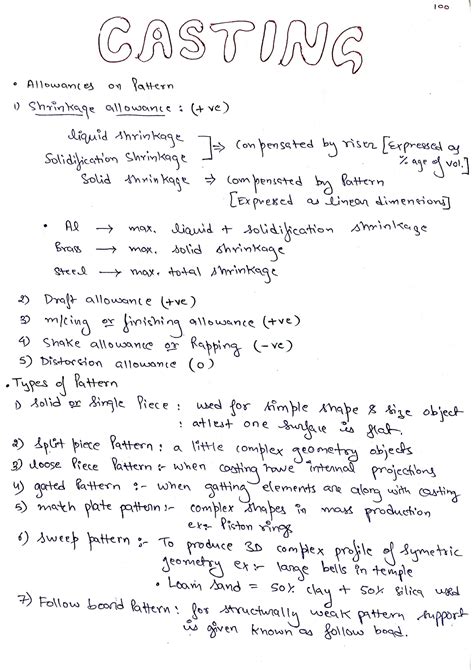 100
CASTING
• Allowances on Pattern
1) Shrinkage allowance : (+ve)
liquid shrinkage
Solidification Shrinkage ] ⇒ compensated by riser [Expressed as % age of vol.]
Solid shrinkage ⇒ compensated by Pattern
[Expressed as linear dimensions]
• Al → max. liquid + solidification shrinkage
Brass → max. solid shrinkage
Steel → max. total shrinkage
2) Draft allowance (+ve)
3) m/cing or finishing allowance (+ve)
4) Shake allowance or Rapping (-ve)
5) Distorsion allowance (0)
• Types of Pattern
1) Solid or Single Piece : used for simple shape & size object
: atlest one surface is flat.
2) Split piece Pattern : a little complex geometry objects
3) loose Piece Pattern :- when casting have internal projections
4) gated Pattern :- when gatting elements are along with casting
5) match plate pattern :- complex shapes in mass production
ex:- Piston rings
6) sweep pattern :- To produce 3D complex profile of symetric
geometry ex :- large bells in temple
• Loam sand = 50% clay + 50% silica used
7) Follow board Pattern : for structurally weak pattern support
is given known as follow boad.